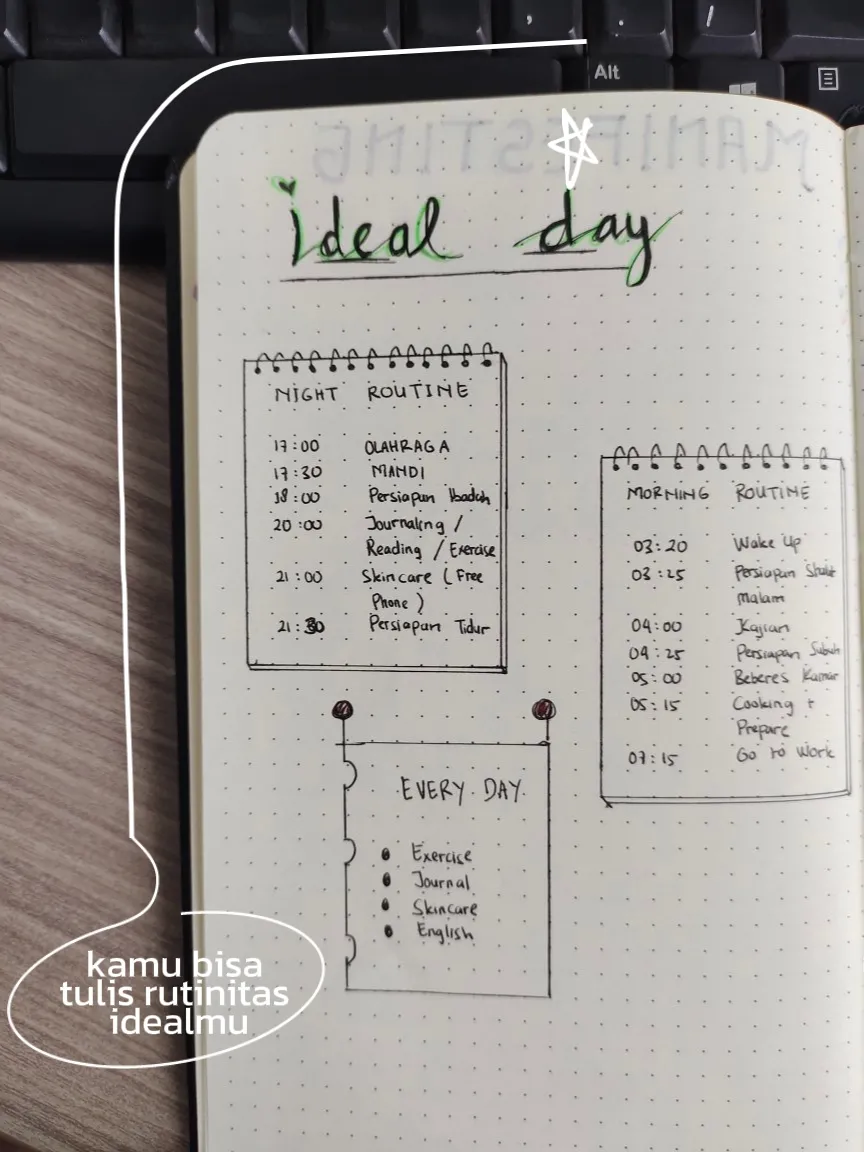 Alt
MANIFESTING
ideal day
NIGHT ROUTINE
17:00 OLAHRAGA
17:30 MANDI
18:00 Persiapan Ibadah
20:00 Journaling /
Reading / Exercise
21:00 Skincare ( Free
Phone )
21:30 Persiapan Tidur
MORNING ROUTINE
03:20 Wake Up
03:25 Persiapan Shalat
Malam
04:00 Kajian
04:25 Persiapan Subuh
05:00 Beberes Kamar
05:15 Cooking +
Prepare
07:15 Go to Work
EVERY DAY
Exercise
Journal
Skincare
English
kamu bisa
tulis rutinitas
idealmu